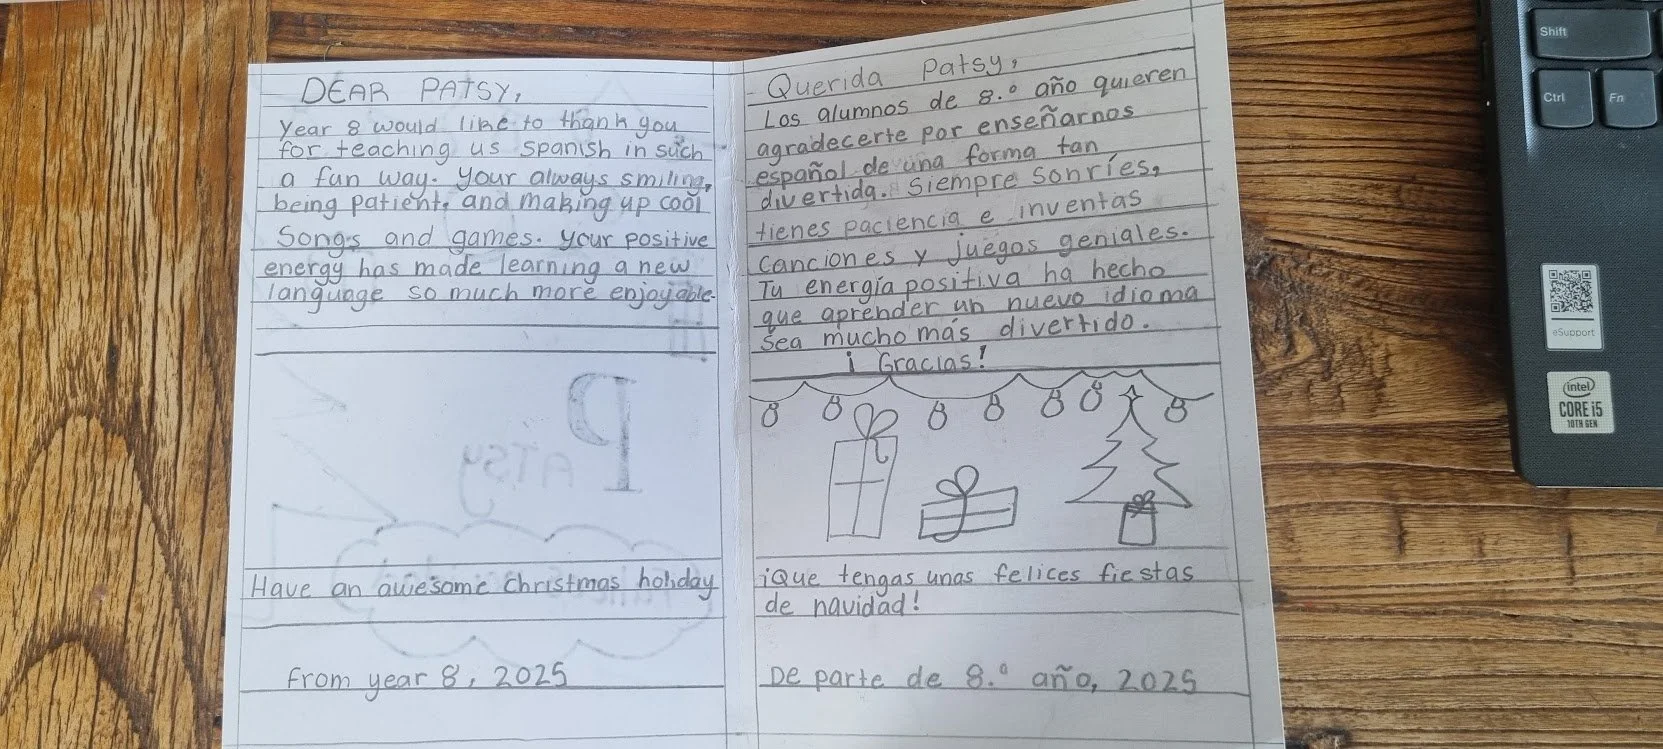 DEAR PATSY,
Year 8 would like to thank you
for teaching us spanish in such
a fun way. Your always smiling,
being patient, and making up cool
Songs and games. Your positive
energy has made learning a new
language so much more enjoyable.
PATSY
Have an awesome christmas holiday
From year 8, 2025
Querida Patsy,
Los alumnos de 8.º año quieren
agradecerte por enseñarnos
español de una forma tan
divertida. Siempre sonríes,
tienes paciencia e inventas
canciones y juegos geniales.
Tu energía positiva ha hecho
que aprender un nuevo idioma
sea mucho más divertido.
¡Gracias!
¡Que tengas unas felices fiestas
de navidad!
De parte de 8.º año, 2025
Shift
Ctrl
Fn
eSupport
intel
CORE i5
10TH GEN